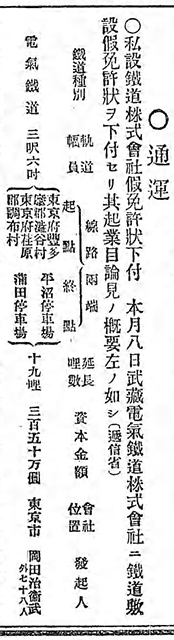 ○通運
○私設鐵道株式會社假免許狀下付 本月八日武藏電氣鐵道株式會社ニ鐵道敷
設假免許狀ヲ下付セリ其起業目論見ノ概要左ノ如シ(遞信省)
鐵道種別 軌道幅員 線路兩端 起點 終點 延長哩數 資本金額 會社位置 發起人
電氣鐵道 三呎六吋 東京府豐多摩郡澁谷村 平沼停車場 十九哩 三百五十万圓 東京市 岡田治衞武外七十八人
東京府荏原郡調布村 蒲田停車場